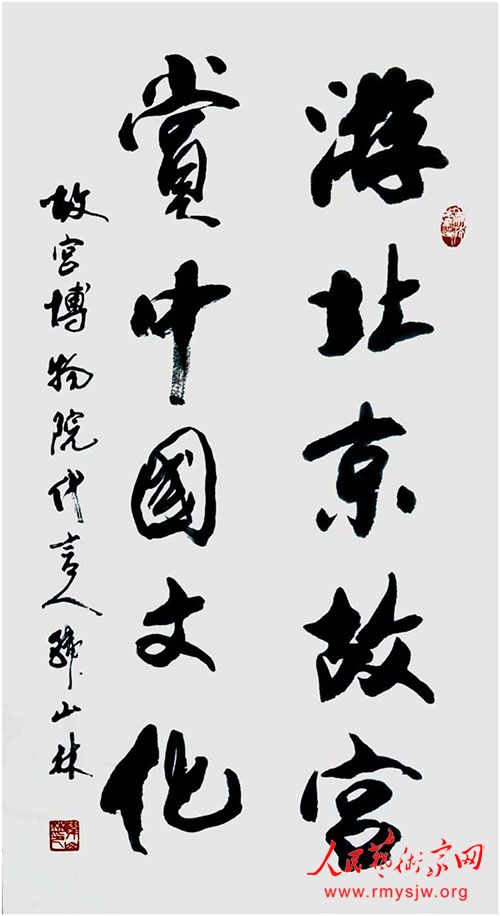 游北京故宫
賞中國文化
故宫博物院代言人 山林
人民藝術家网
www.rmysjw.org